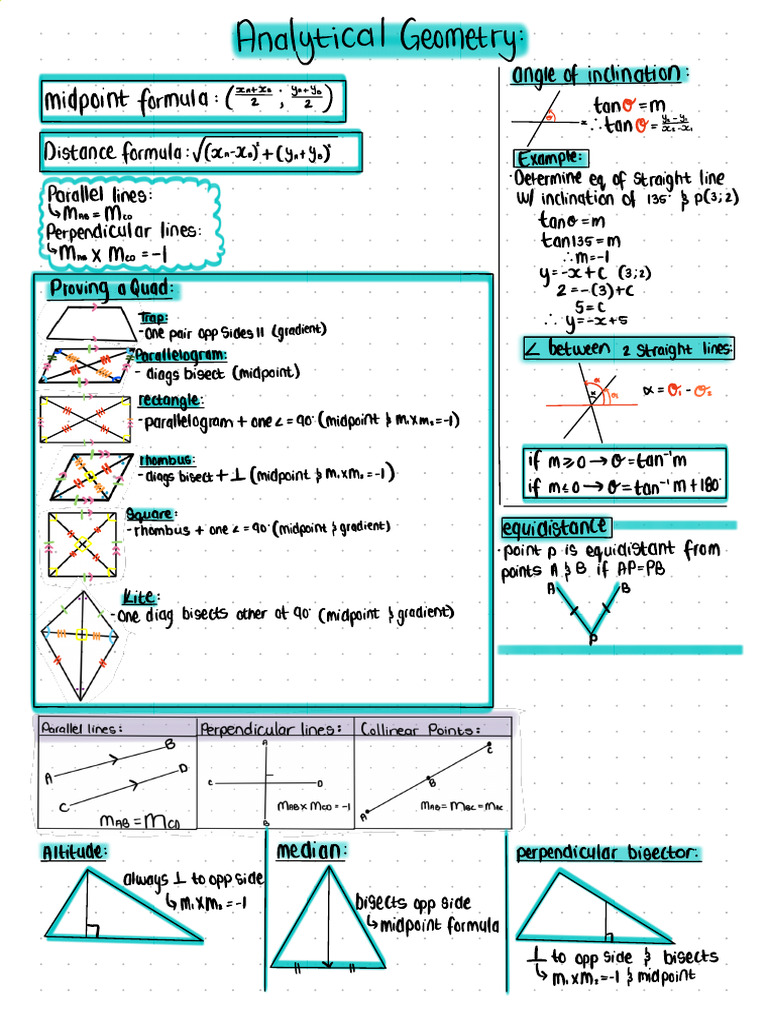 Analytical Geometry:
midpoint formula: (xA+xB/2 ; yA+yB/2)
Distance formula: √(xA-xB)²+(yA+yB)²
Parallel lines:
↳ mAB = mCD
Perpendicular lines:
↳ mAB x mCD = -1
Proving a Quad:
Trap:
- one pair opp sides || (gradient)
Parallelogram:
- diags bisect (midpoint)
rectangle:
- parallelogram + one ∠ = 90° (midpoint & m₁xm₂=-1)
rhombus:
- diags bisect + ⊥ (midpoint & m₁xm₂=-1)
Square:
- rhombus + one ∠ = 90° (midpoint & gradient)
Kite:
- one diag bisects other at 90° (midpoint & gradient)
angle of inclination:
θ
x
tanθ = m
∴ tanθ = y₂-y₁/x₂-x₁
Example:
· Determine eq of straight line
w/ inclination of 135° & p(3;2)
tanθ = m
tan135 = m
∴ m=-1
y=-x+c (3;2)
2=-(3)+c
5=c
∴ y=-x+5
∠ between 2 straight lines:
α = θ₁ - θ₂
if m≥0 → θ=tan⁻¹m
if m≤0 → θ=tan⁻¹m+180°
equidistance
· point p is equidistant from
points A & B if AP=PB
A B
P
Parallel lines: Perpendicular lines: Collinear Points:
A B
C D
mAB = mCD
A
C D
B
mAB x mCD = -1
C
B
A
mAB = mBC = mBC
Altitude:
always ⊥ to opp side
↳ m₁xm₂=-1
median:
bisects opp side
↳ midpoint formula
perpendicular bisector:
⊥ to opp side & bisects
↳ m₁xm₂=-1 & midpoint